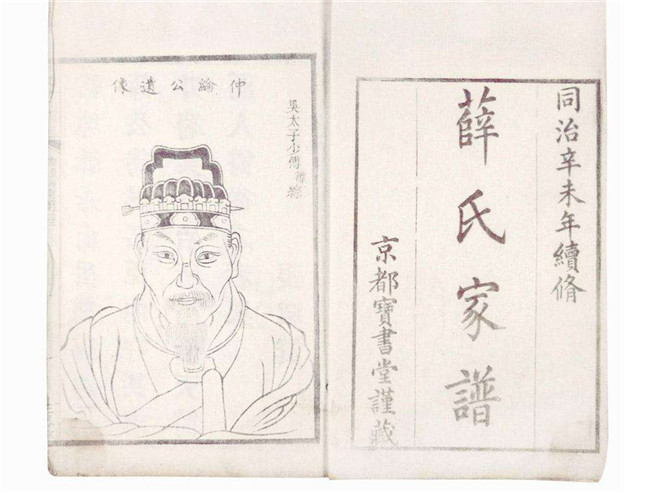 同治辛未年續脩
薛氏家譜
京都寶書堂謹藏
仲綸公遺像
吳太子少傅